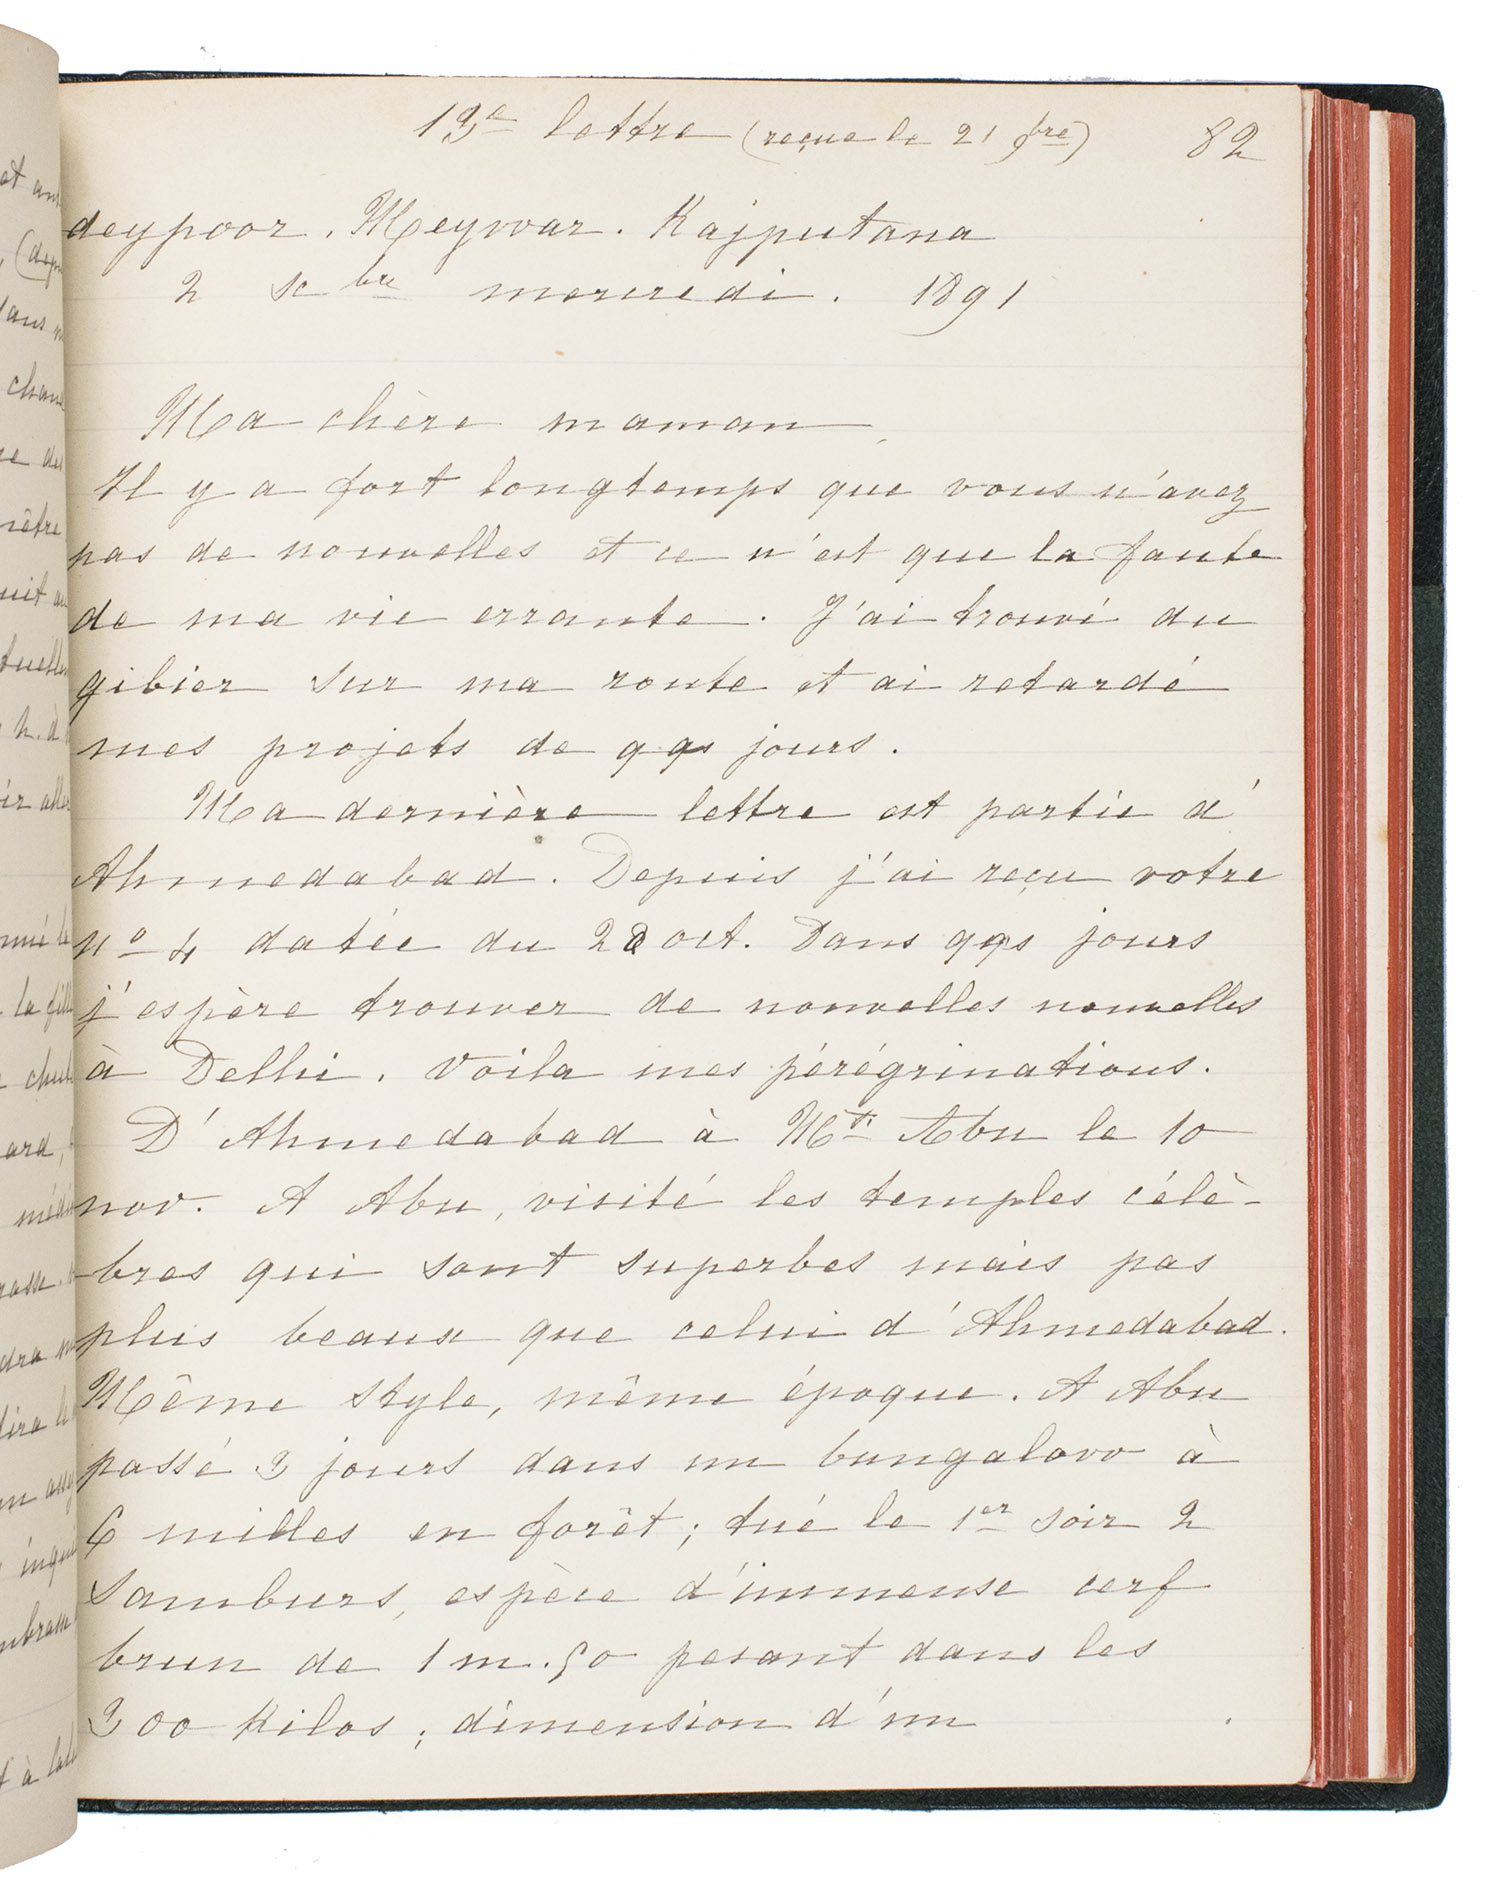 13e lettre (reçue le 21 9bre) 82
deypoor. Meywar. Rajputana
2 Xbre mercredi. 1891
Ma chère maman,
Il y a fort longtemps que vous n'avez
pas de nouvelles et ce n'est que la faute
de ma vie errante. J'ai trouvé du
gibier sur ma route et ai retardé
mes projets de qqs jours.
Ma dernière lettre est partie d'
Ahmedabad. Depuis j'ai reçu votre
no 4 datée du 20 oct. Dans qqs jours
j'espère trouver de nouvelles nouvelles
à Delhi. Voila mes pérégrinations.
D'Ahmedabad à Mt. Abu le 10
nov. A Abu, visité les temples célè-
bres qui sont superbes mais pas
plus beaux que celui d'Ahmedabad.
Même style, même époque. A Abu
passé 3 jours dans un bungalow à
6 milles en forêt; tué le 1er soir 2
Samburs, espèce d'immense cerf
brun de 1 m. 50 pesant dans les
300 Kilos; dimension d'un